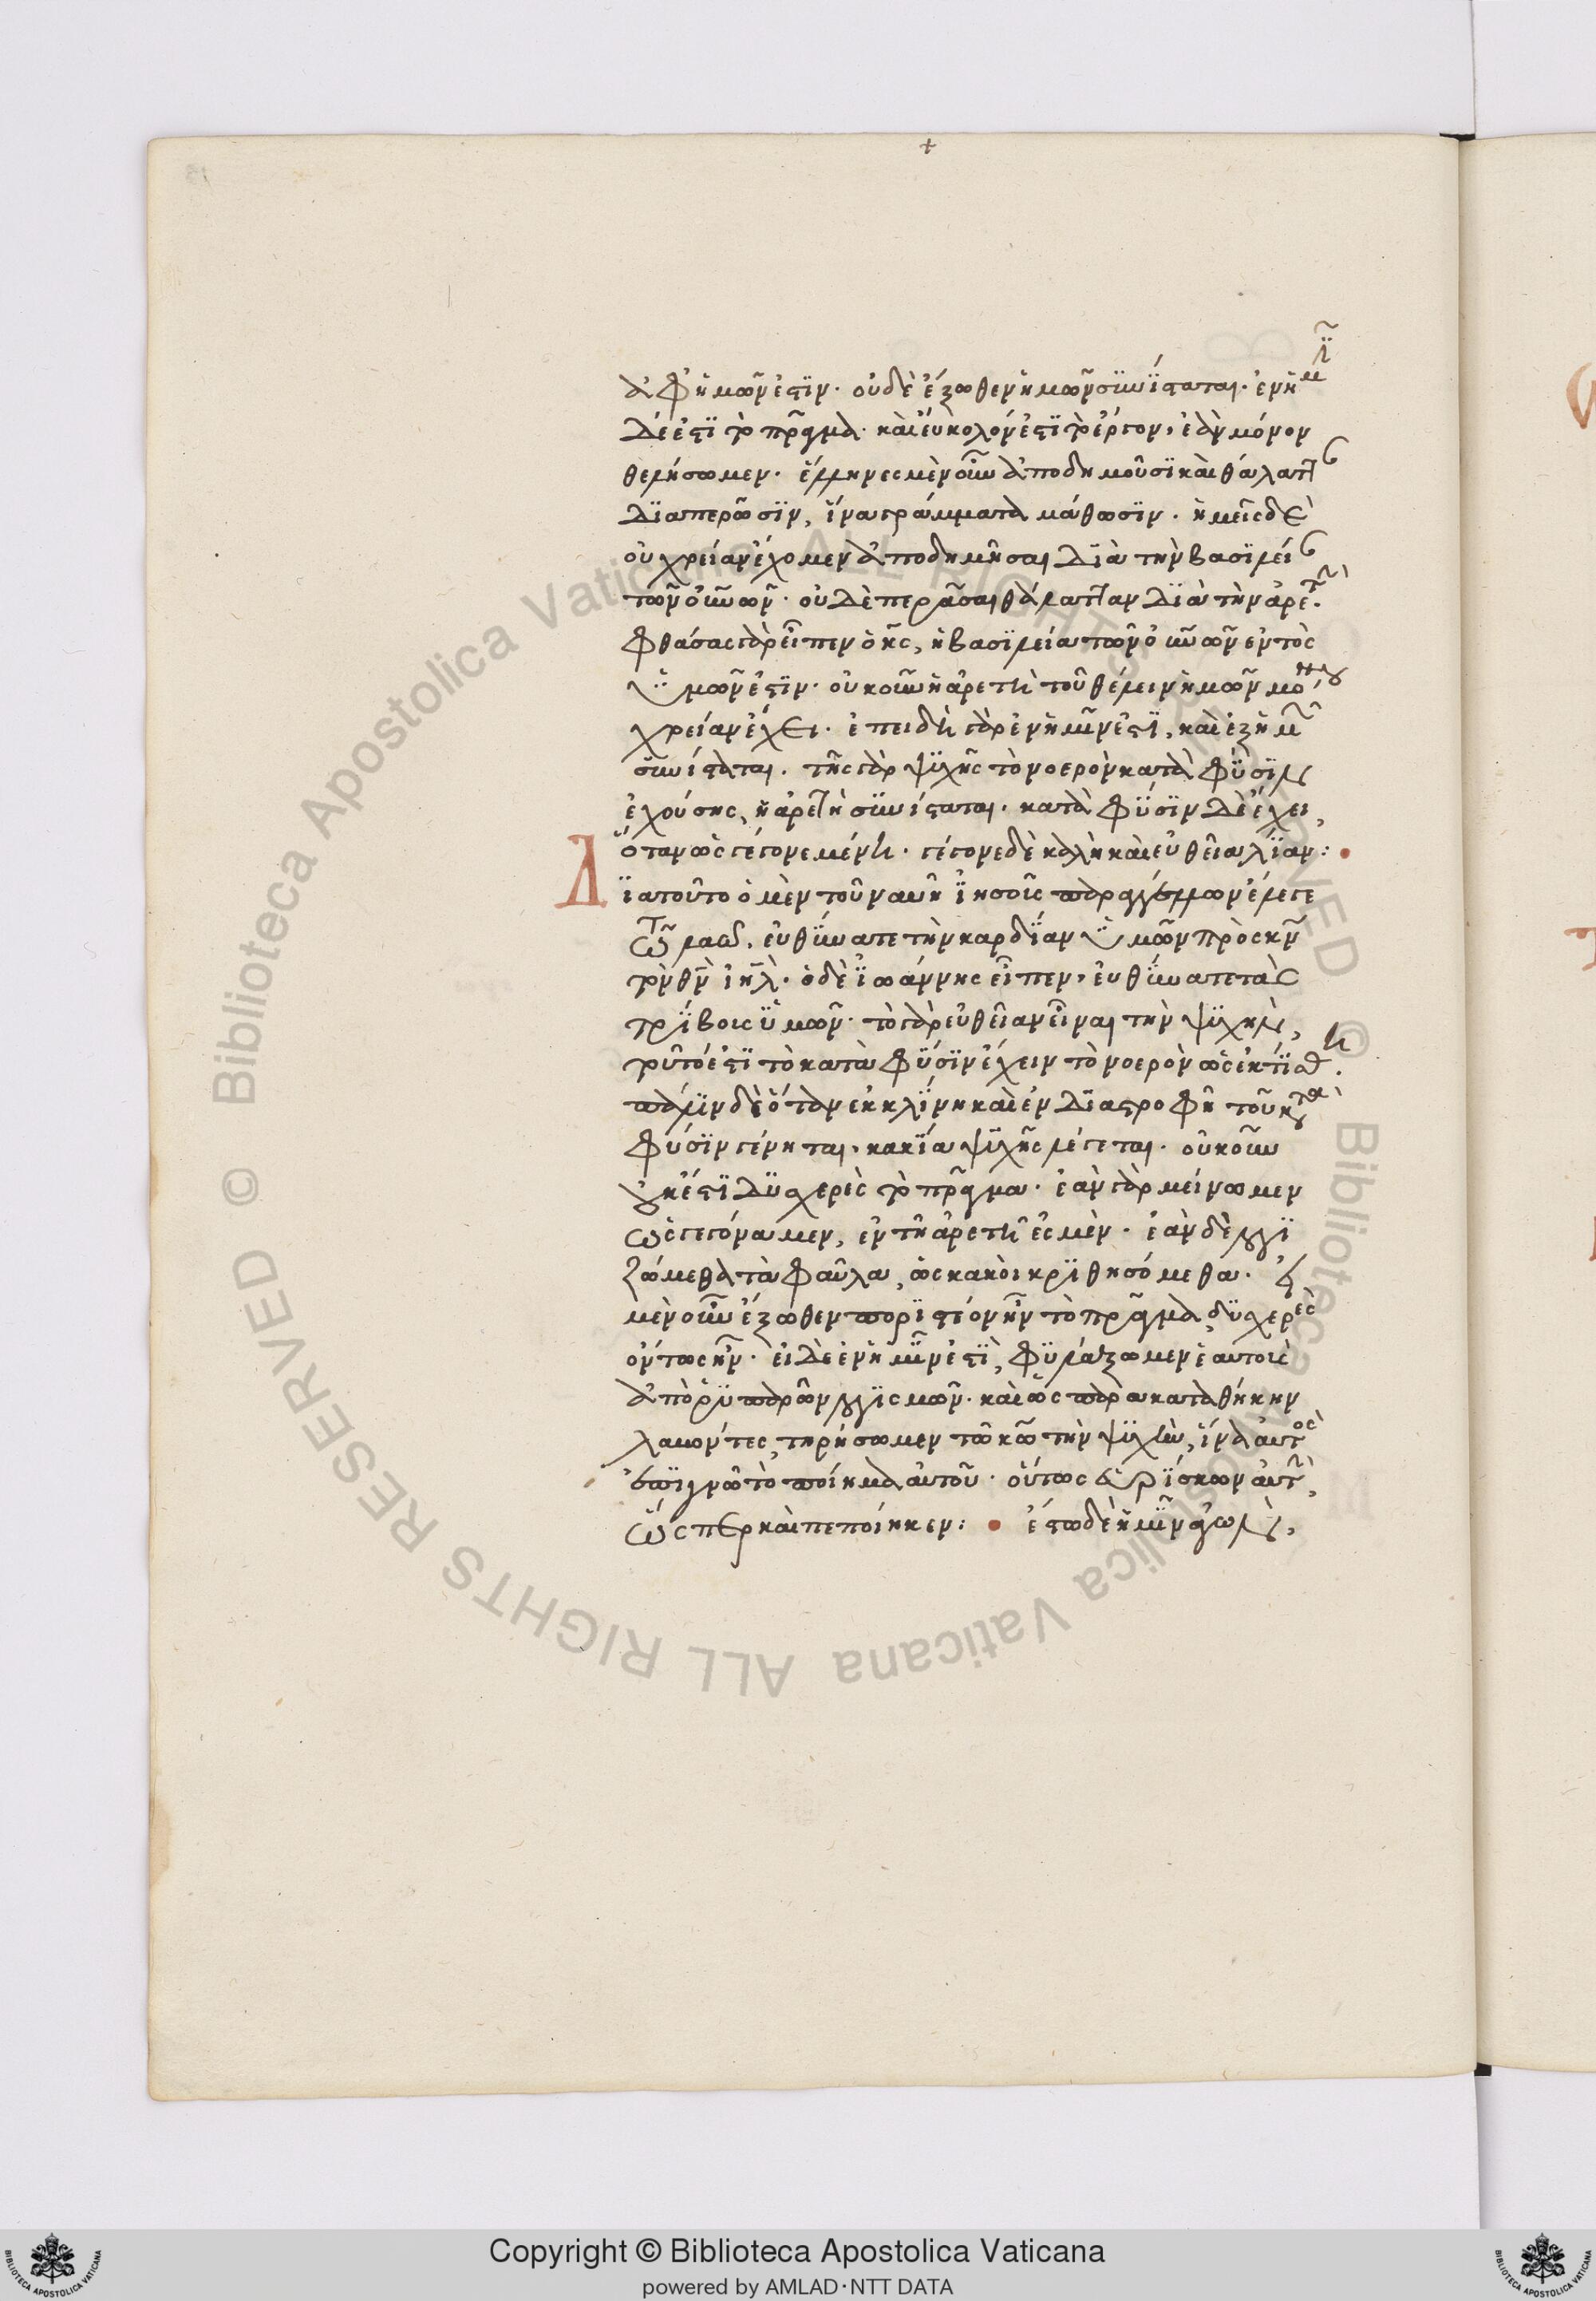 ἀφ ἡμῶν ἐστϊν· οὐδὲ ἔξωθεν ἡμῶν σϋνΐσταται· ἐν ἡμῖ
δέ ἐστϊ τὸ πρᾶγμα· καὶ εὔκολόν ἐστϊ τὸ ἔργον, ἐὰν μόνον
θελήσωμεν· ἕλληνες μὲν οὖν ἀποδημοῦσϊ καὶ θάλαττ
δϊαπερῶσϊν, ἵνα γράμματα μάθωσϊν· ἡμεῖς δὲ
οὐ χρείαν ἔχομεν ἀποδημῆσαι δϊὰ τὴν βασϊλεί
τῶν οὐνῶν· οὐδὲ περᾶσαι θάλατταν δϊὰ τὴν ἀρετ·
φθάσας γὰρ εἶπεν ὁ κς, ἡ βασϊλεία τῶν οὐνῶν ἐντὸς
ϋμῶν ἐστϊν· οὐκοῦν ἡ ἀρετὴ τοῦ θέλειν ἡμῶν μόνου
χρείαν ἔχει· ἐπειδὴ γὰρ ἐν ἡμῖν ἐστϊ, καὶ ἐξ ἡμ
σϋνίσταται· τῆς γὰρ ψϋχῆς τὸ νοερὸν κατὰ φϋσϊν
ἐχούσης, ἡ ἀρετὴ σϋνίσταται· κατὰ φϋσϊν δὲ ἔχει,
ὅταν ὡς γέγονε μένη· γέγονε δὲ καλὴ καὶ εὐθεῖα λΐαν:
Δϊατοῦτο ὁ μὲν τοῦ ναυῆ ϊησοῦς παραγγέλλων ἔλεγε
τῶ λαῶ, εὐθϋνατε τὴν καρδΐαν ϋμῶν πρὸς κν
τὸν θν ιηλ· ὁ δὲ ϊωάννης εἶπεν, εὐθϋνατε τὰς
τρϊβους ϋμῶν· τὸ γὰρ εὐθεῖαν εἶναι τὴν ψϋχὴν,
τοῦτό ἐστϊ τὸ κατὰ φϋσϊν ἔχειν τὸ νοερὸν ὡς ἐκτΐσθη·
πάλϊν δὲ ὅταν ἐκκλΐνη καὶ ἐν δϊαστροφῆ τοῦ κατὰ
φύσϊν γένηται, κακΐα ψϋχῆς λέγεται· οὐκοῦν
οὐκ ἔστϊ δϋσχερὲς τὸ πρᾶγμα· ἐὰν γὰρ μείνωμεν
ὡς γεγόναμεν, ἐν τῆ ἀρετῆ ἐσμὲν· ἐὰν δὲ λογϊ
ζώμεθα τὰ φαῦλα, ὡς κακοὶ κρϊθησόμεθα· εἰ
μὲν οὖν ἔξωθεν πορϊστέον ἦν τὸ πρᾶγμα, δϋσχερὲς
ὄντως ἦν· εἰ δὲ ἐν ἡμῖν ἐστϊ, φϋλάξωμεν ἑαυτοὺς
ἀπὸ ῥϋπαρῶν λογϊσμῶν· καὶ ὡς παρακαταθήκην
λαβόντες, τηρήσωμεν τῶ κω τὴν ψϋχὴν, ἵνα αὐτὸς
ἐπϊγνῶ τὸ ποίημα αὐτοῦ· οὕτως εὑρΐσκων αὐτ,
ὥσπερ καὶ πεποίηκεν: ἔστω δὲ ἡμῖν ἀγὼν,